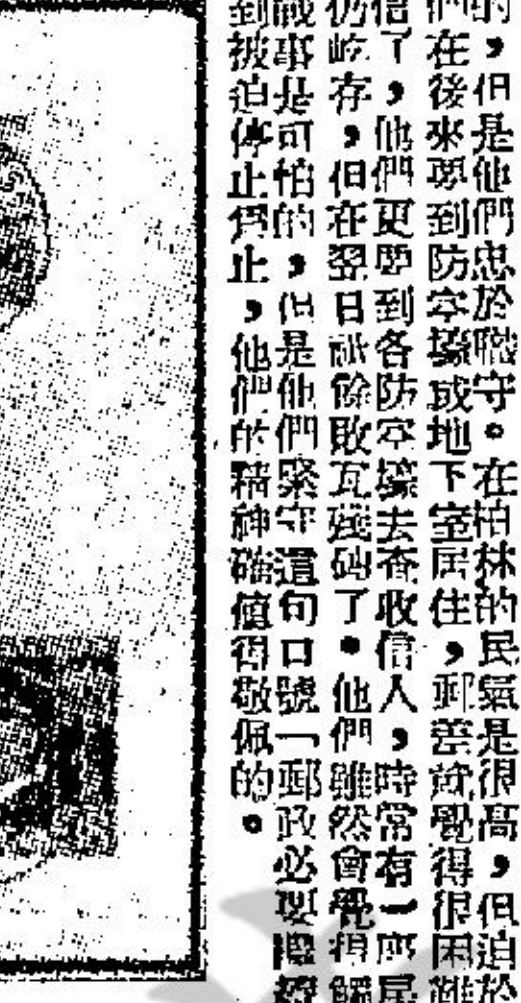 的，但是他們忠於職守。在柏林的民氣是很高，但迫於
們在後來要到防空壕或地下室居住，郵差就覺得很困難
信了，他們更要到各防空壕去查收信人，時常有一座屋
仍屹存，但在翌日祇餘敗瓦殘磚了。他們雖然會覺得
戰事是可怕的，但是他們緊守這句口號一郵政必要
到被迫停止為止，他們的精神確值得敬佩的。